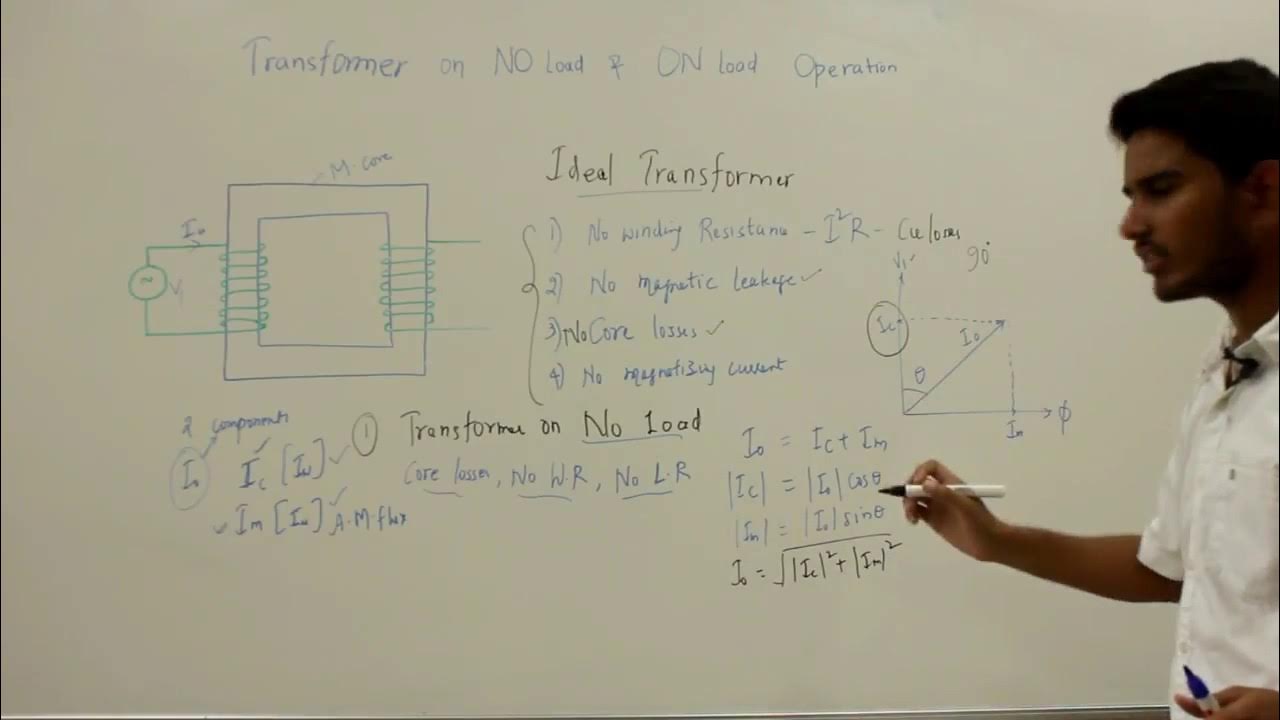 Transformer on NO load & ON load Operation
M.core
I₀
~
V₁
Ideal Transformer
1) No winding Resistance - I²R - Cu losses
2) No magnetic leakage ✓
3) No Core losses ✓
4) No magnetizing current
V₁'
90°
Ic
I₀
θ
Im
ϕ
2 components
I₀
Ic [Iw] ✓
Im [Iu] A.M.flux
① Transformer on No Load
Core losses, No W.R, No L.R
I₀ = Ic + Im
|Ic| = |I₀| cosθ
|Im| = |I₀| sinθ
I₀ = √|Ic|² + |Im|²